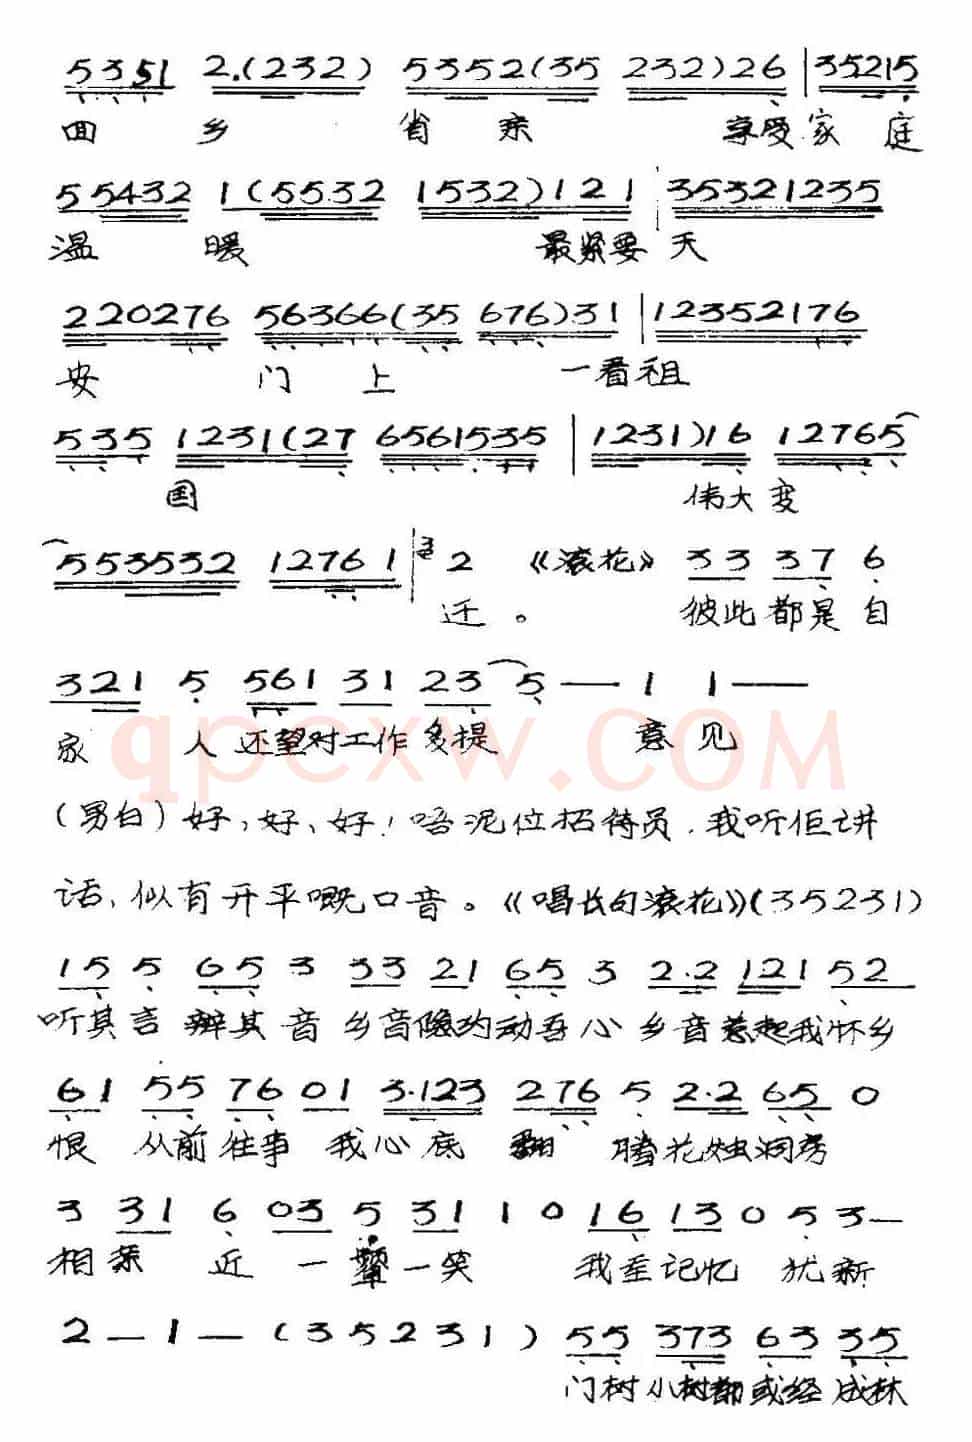 5351 2.(232) 5352(35 232)26 | 35215
回 乡 省 亲 享受家 庭
55432 1(5532 1532)121 35321235
温 暖 最紧要 天
220276 56366(35 676)31 | 12352176
安 门 上 一看祖
535 1231(27 6561535 | 1231)16 12765
国 伟大变
553532 12761 3 2 《滚花》 33 37 6
迁。 彼此都是自
321 5 561 31 23 5 — 1 1 —
家 人 还望对工作多提 意见
qpcxw.COM
(男白)好,好、好!唔泥位招待员,我听佢讲
话、似有开平嘅口音。《唱长句滚花》(35231)
15 5 65 3 33 21 65 3 2.2 121 52
听其言 辨其 音 乡音隐约动吾心 乡音惹起我怀乡
61 55 76 01 3.123 276 5 2.2 65 0
恨 从前往事 我心底 翻 腾花烛洞房
3 31 6 03 5 31 1 0 16 13 0 5 3—
相亲 近 一颦一笑 我至记忆 犹新
2 — 1 — (35231) 55 373 63 35
门树小树都或经成林